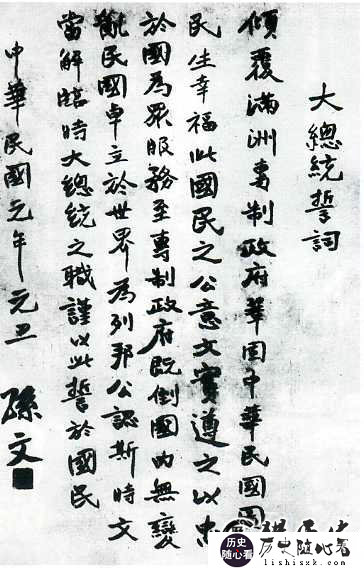 大總統誓詞
傾覆滿洲專制政府鞏固中華民國圖
民生幸福此國民之公意文實遵之以忠
於國為眾服務至專制政府既倒國內無變
亂民國卓立於世界為列邦公認斯時文
當解臨時大總統之職謹以此誓於國民
中華民國元年元旦 孫文
历史
随心看
历史随心看